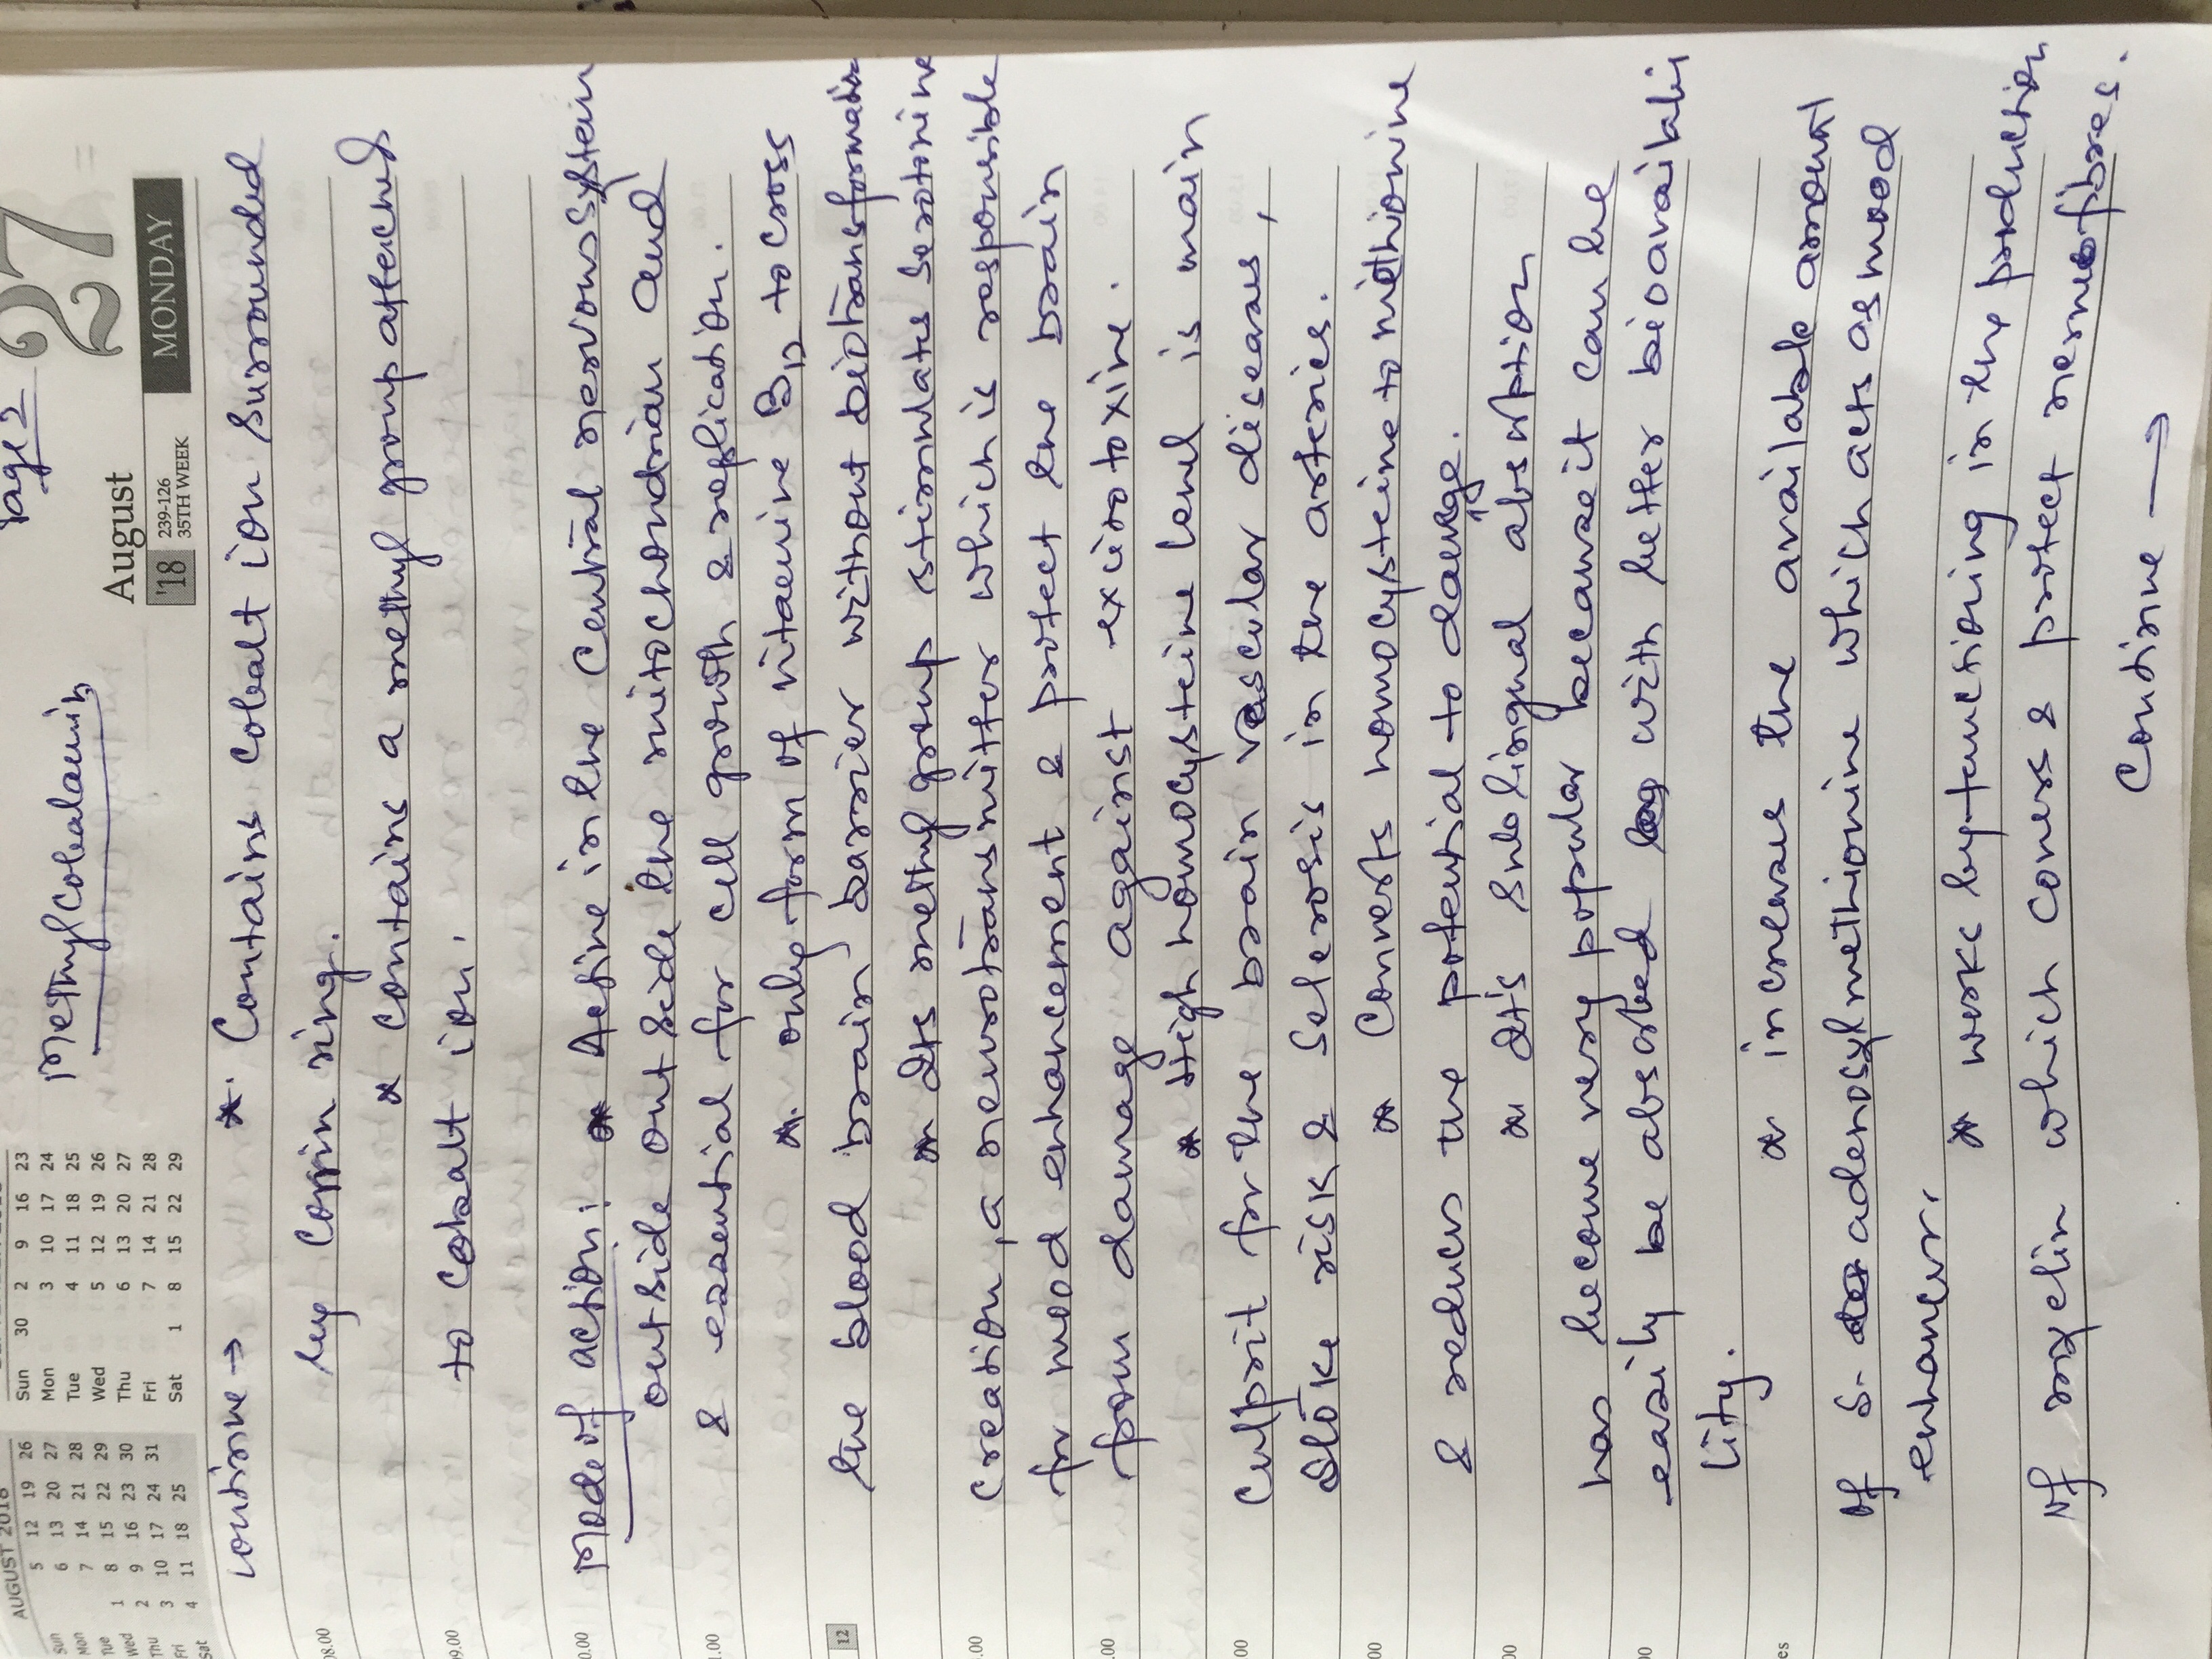 Page 2
27
August
MONDAY
'18
239-126
35TH WEEK
AUGUST 2018
Sun 5 12 19 26
Mon 6 13 20 27
Tue 7 14 21 28
Wed 1 8 15 22 29
Thu 2 9 16 23 30
Fri 3 10 17 24 31
Sat 4 11 18 25
Sun 30 2 9 16 23
Mon 3 10 17 24
Tue 4 11 18 25
Wed 5 12 19 26
Thu 6 13 20 27
Fri 7 14 21 28
Sat 1 8 15 22 29
Methylcobalamin
Continue → * Contains cobalt ion surrounded
by Corrin ring.
* Contains a methyl group attached
to Cobalt ion.
Mode of action: * Active in the Central nervous system
outside outside the mitochondrian and
& essential for cell growth & replication.
* only form of vitamine B12 to cross
the blood brain barrier without biotransformation
* Its methyl group stimulates serotonine
Creation, a neurotransmitter which is responsible
for mood enhancement & protect the brain
from damage against excitotoxine.
* High homocysteine level is main
Culprit for the brain vascular diseases,
Stroke risk & Selerosis in the arteries.
* Converts homocysteine to methionine
& reduces the potential to damge.
* It's Sublingual absorption
has become very popular because it can be
easily be absorbed with better bioavailabi
lity.
* increases the available amount
of S- adenosylmethionine which acts as mood
enhancer.
* works by functioning in the production
of myelin which covers & protect nerve fibres.
Continue →
08.00
09.00
12